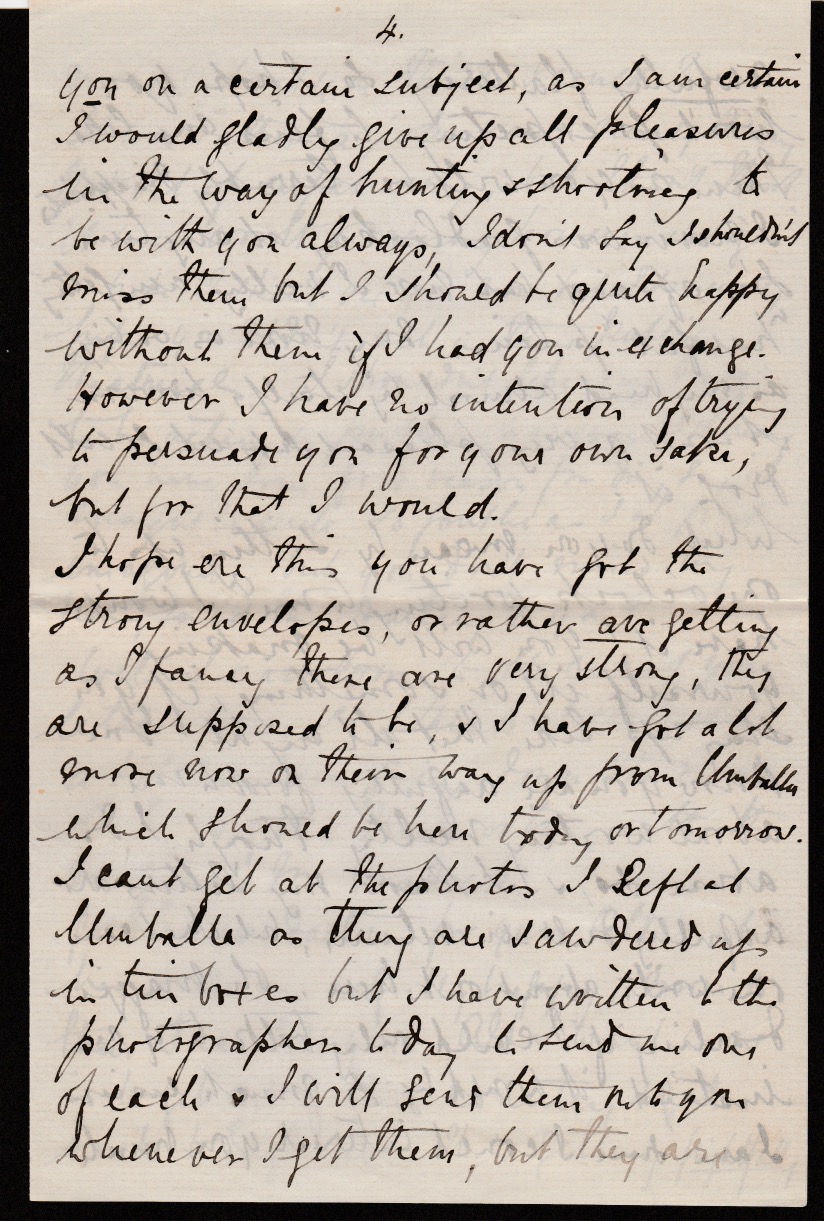 4.
you on a certain subject, as I am certain
I would gladly give up all pleasures
in the way of hunting & shooting to
be with you always, I don't say I shouldn't
miss them but I should be quite happy
without them if I had you in exchange.
However I have no intention of trying
to persuade you for your own sake,
but for that I would.
I hope ere this you have got the
strong envelopes, or rather are getting
as I fancy these are very strong, they
are supposed to be, & I have got a lot
more now on their way up from Umballa
which should be here today or tomorrow.
I cant get at the photos I left at
Umballa as they are sawdered up
in tin boxes but I have written to the
photographer today to send me one
of each & I will send them on to you
whenever I get them, but they are